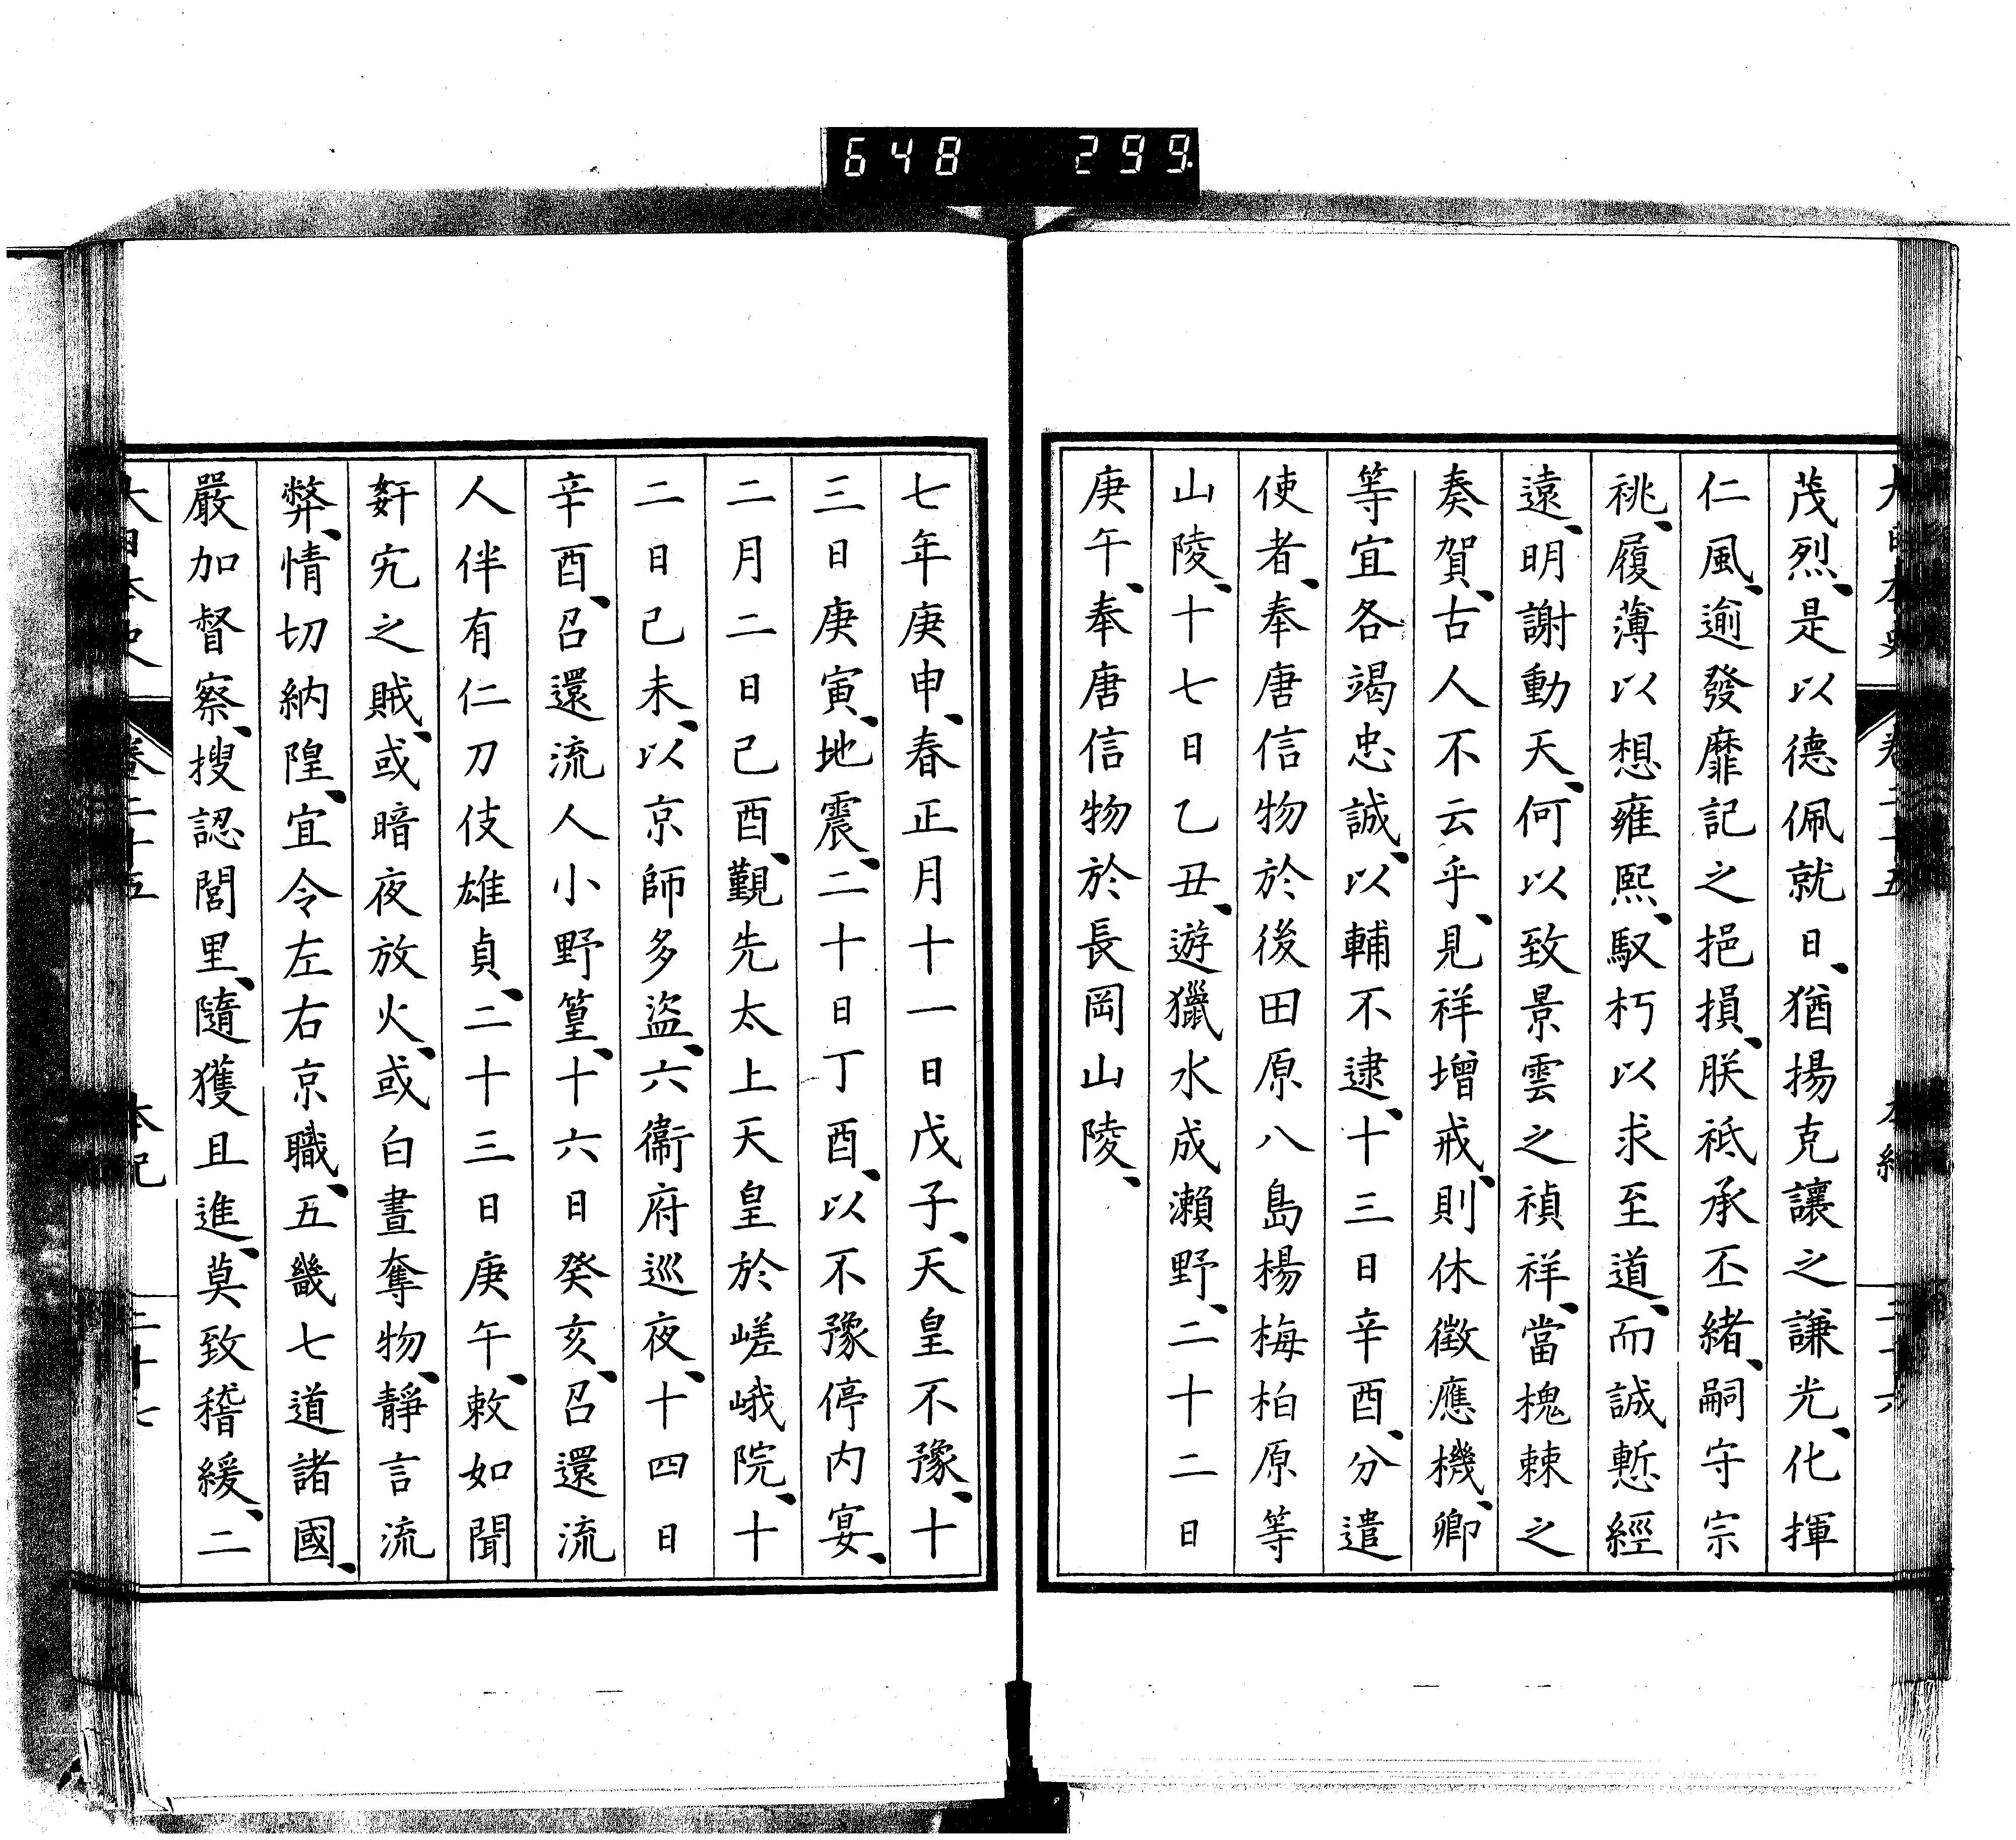 648 299
大日本史 卷二十五 本紀 二十六
茂烈、是以德佩就日、猶揚克讓之謙光、化揮
仁風、逾發靡記之挹損、朕祗承丕緒、嗣守宗
祧、履薄以想雍熙、馭朽以求至道、而誠慙經
遠、明謝動天、何以致景雲之禎祥、當槐棘之
奏賀、古人不云乎、見祥增戒、則休徵應機、卿
等宜各竭忠誠、以輔不逮、十三日辛酉、分遣
使者、奉唐信物於後田原八島楊梅柏原等
山陵、十七日乙丑、遊獵水成瀨野、二十二日
庚午、奉唐信物於長岡山陵、
七年庚申、春正月十一日戊子、天皇不豫、十
三日庚寅、地震、二十日丁酉、以不豫停内宴、
二月二日己酉、覲先太上天皇於嵯峨院、十
二日己未、以京師多盜、六衞府巡夜、十四日
辛酉、召還流人小野篁、十六日癸亥、召還流
人伴有仁刀伎雄貞、二十三日庚午、敕如聞
姧宄之賊、或暗夜放火、或白晝奪物、靜言流
弊、情切納隍、宜令左右京職、五畿七道諸國、
嚴加督察、搜認閭里、隨獲且進、莫致稽緩、二
大日本史 卷二十五 本紀 二十七